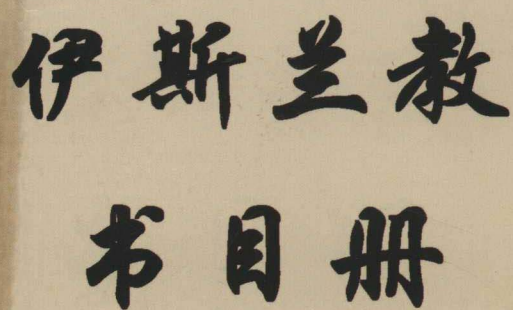 伊斯兰教
书目册